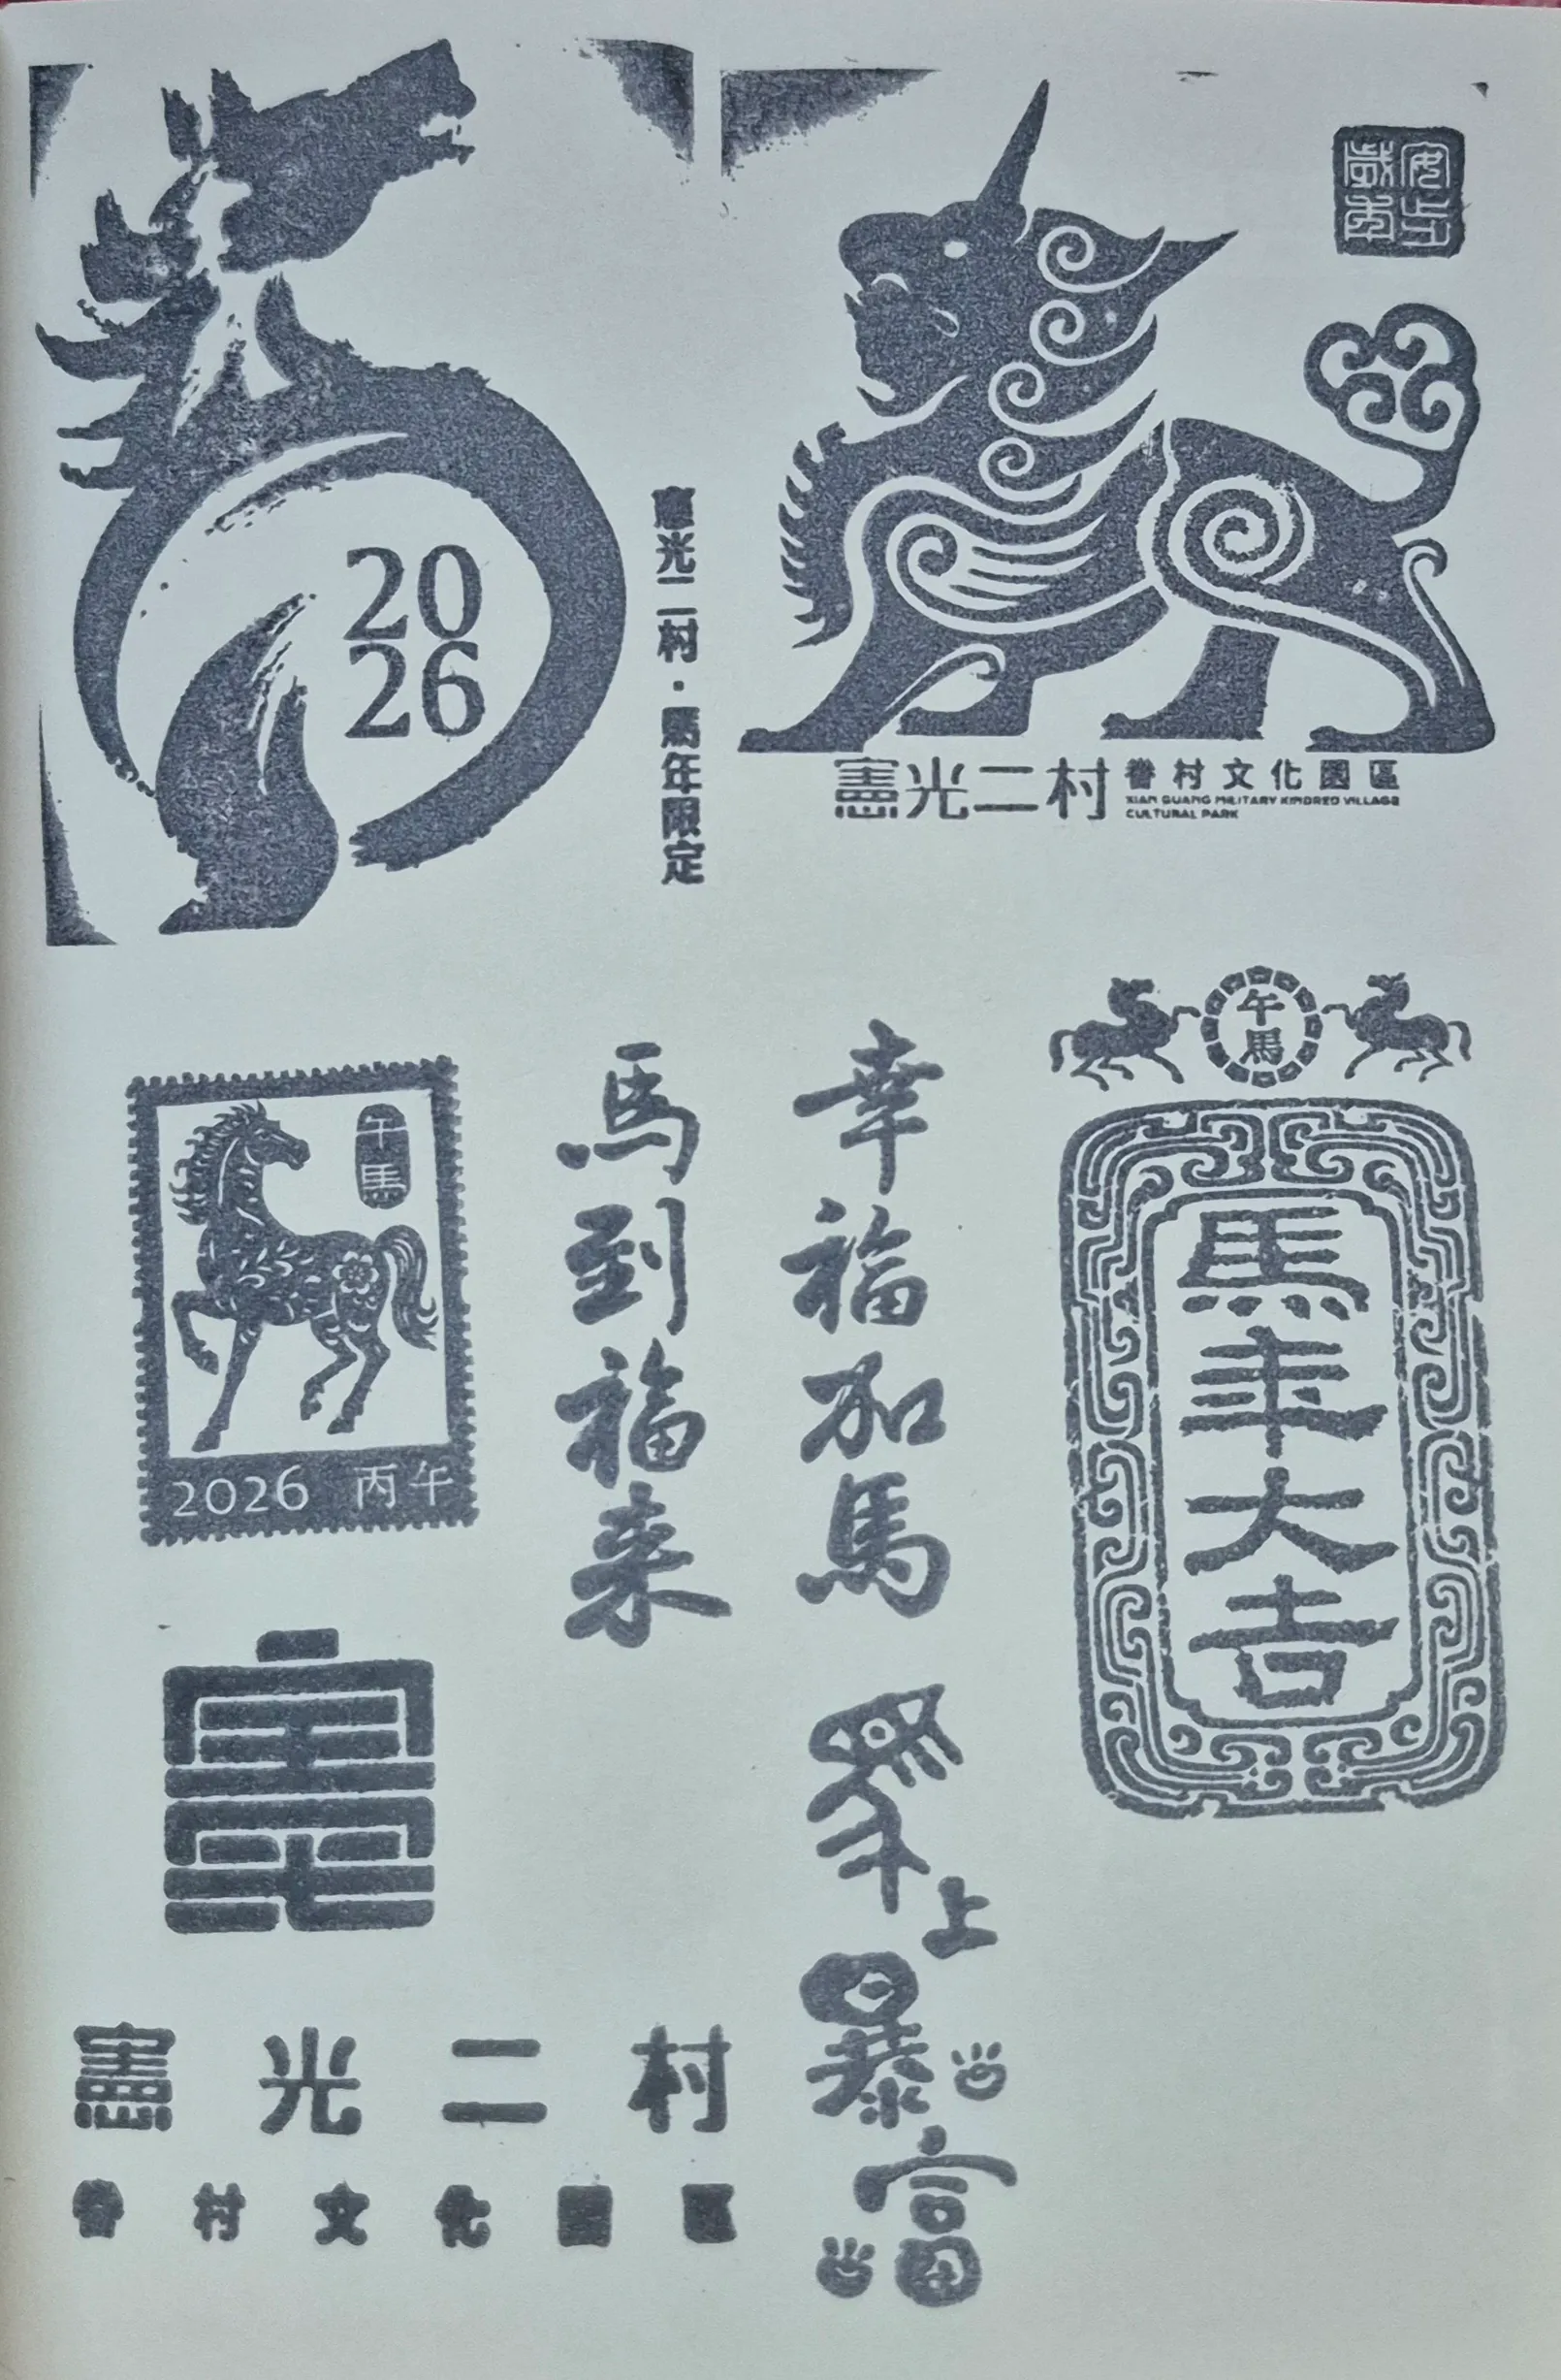 20
26
憲光二村·馬年限定
憲光二村 眷村文化園區
XIAN GUANG MILITARY KINDRED VILLAGE
CULTURAL PARK
午馬
2026 丙午
馬到福來
幸福加馬
午馬
馬年大吉
憲
馬上暴富
憲光二村
眷村文化園區